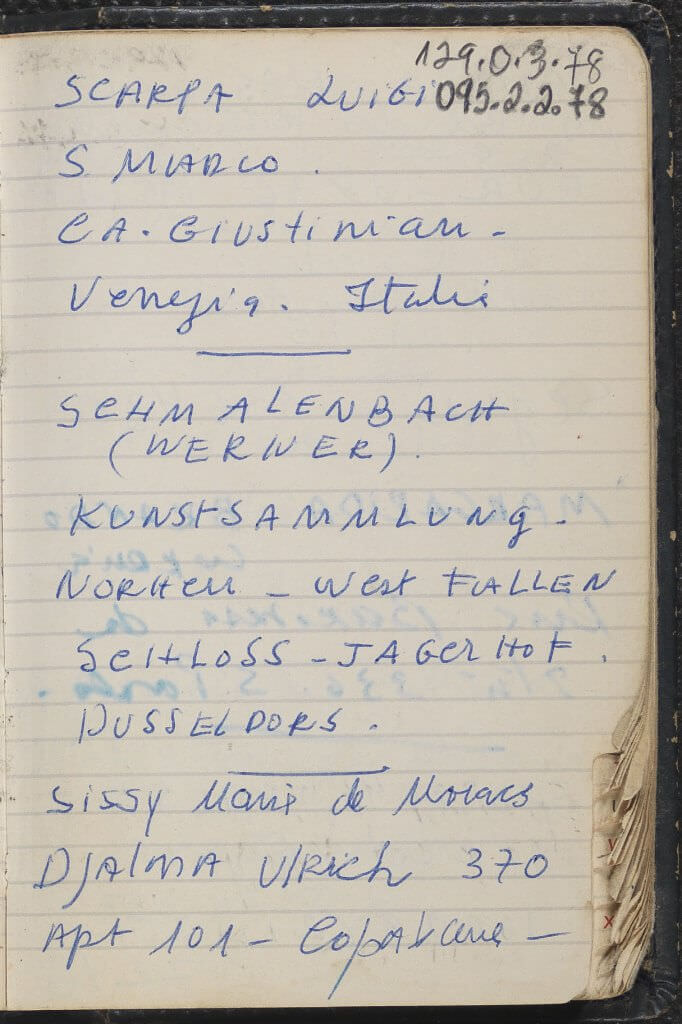 129.0.3.78
SCARPA LUIGI 095.2.2.78
S. MARCO.
CA. GIUSTINIAN -
Venezia. Italie
SCHMALENBACH
(WERNER).
KUNSTSAMMLUNG -
NORHEIN - West FALLEN
SCHLOSS - JAGERHOF.
DUSSELDORS.
Sissy Marie de Moraes
DJALMA Ulrich 370
Apt 101 - Copabana -